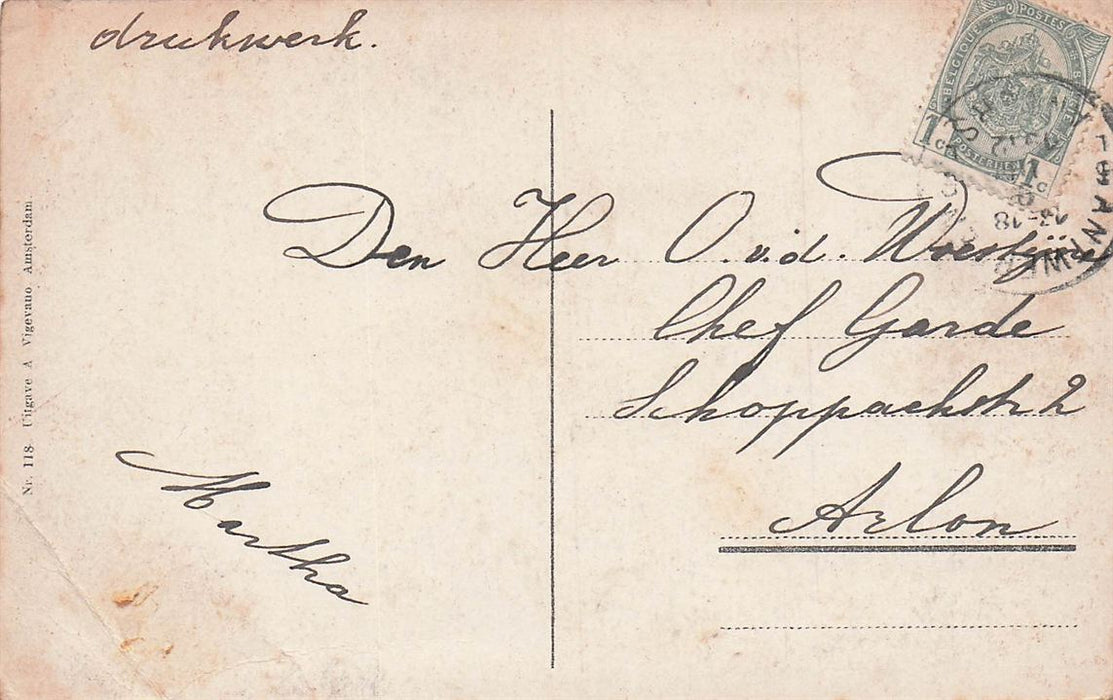 drukwerk.
BELGIQUE POSTES
1c
POSTERIJEN
1c
13-18
Den Heer O. v. d. Woestijne
Chef Garde
Schoppachstr 2
Arlon
Martha
Nr. 118 Uitgave A Vigevano Amsterdam.